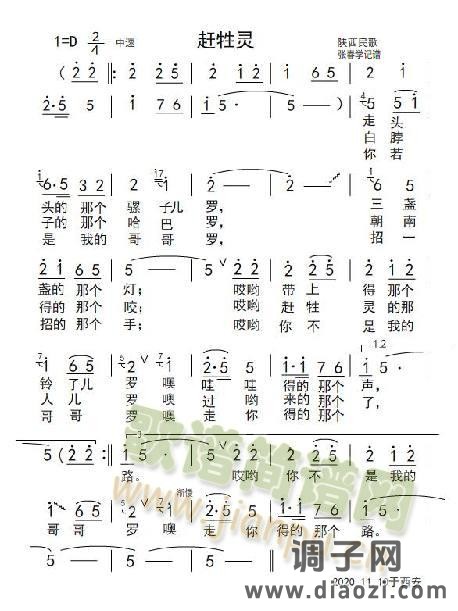 赶牲灵
1=D 2/4 中速 陕西民歌
张春学记谱
( 2 2 ‖: 2 2 5 | 2 2 1 2 | 1 6 5 | 2 1 |
2·5 5 | 1 7 6 | 1 5· | 5 — ) | 5 5 1 |
走头
白脖
你若
6·5 3 2 | 5 2 1 | 2 — | 2 — | 2 5 |
头的那个骡子儿罗, 三盏
子的那个哈巴罗, 朝南
是我的哥哥罗, 招一
2 1 6 5 | 5 — | 5 ∨ 2 2 | 2 1 | 2 2 2 |
盏的那个灯; 哎哟带上得那个
得的那个咬; 哎哟赶牲灵的那
招的那个手; 哎哟你不是我的
1 6 5 | 5 2 ∨ 1 | 2·5 5 | 1·1 7 6 | 5 — |
1.2
铃了儿罗噢哇哇得的那个声,
人儿罗噢过哟来的那个了,
哥哥罗噢走你得的那个
5 ( 2 2 :‖ 1 5· | 5 2 2 | 2 1 | 2 2 2 |
路。 哎哟你不是我的
渐慢
1 6 5 | 5 2 ∨ 1 | 2·5 5 | 1·1 7 6 | 5 — |
哥哥罗噢走你得的那个路。
5 — | 5 — | 5 — ‖
2020.11.19于西安
歌谱简谱网
www.jianpu.cn
调子网
www.diaozi.com